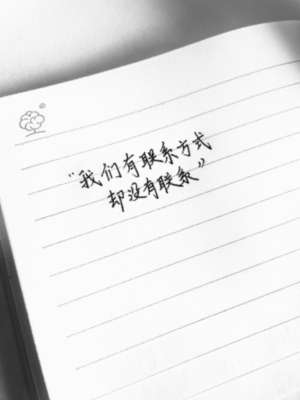 “我们有联系方式
却没有联系”